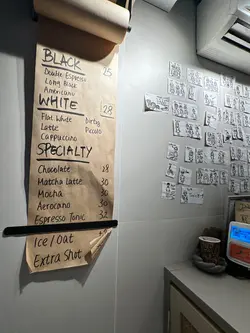 BLACK
Double Espresso 25
Long Black
Americano
WHITE 28
Flat White Dirty
Latte Piccolo
Cappuccino
SPECIALTY
Chocolate 28
Matcha Latte 30
Mocha 30
Aerocano 30
Espresso Tonic 32
Ice/Oat
Extra Shot